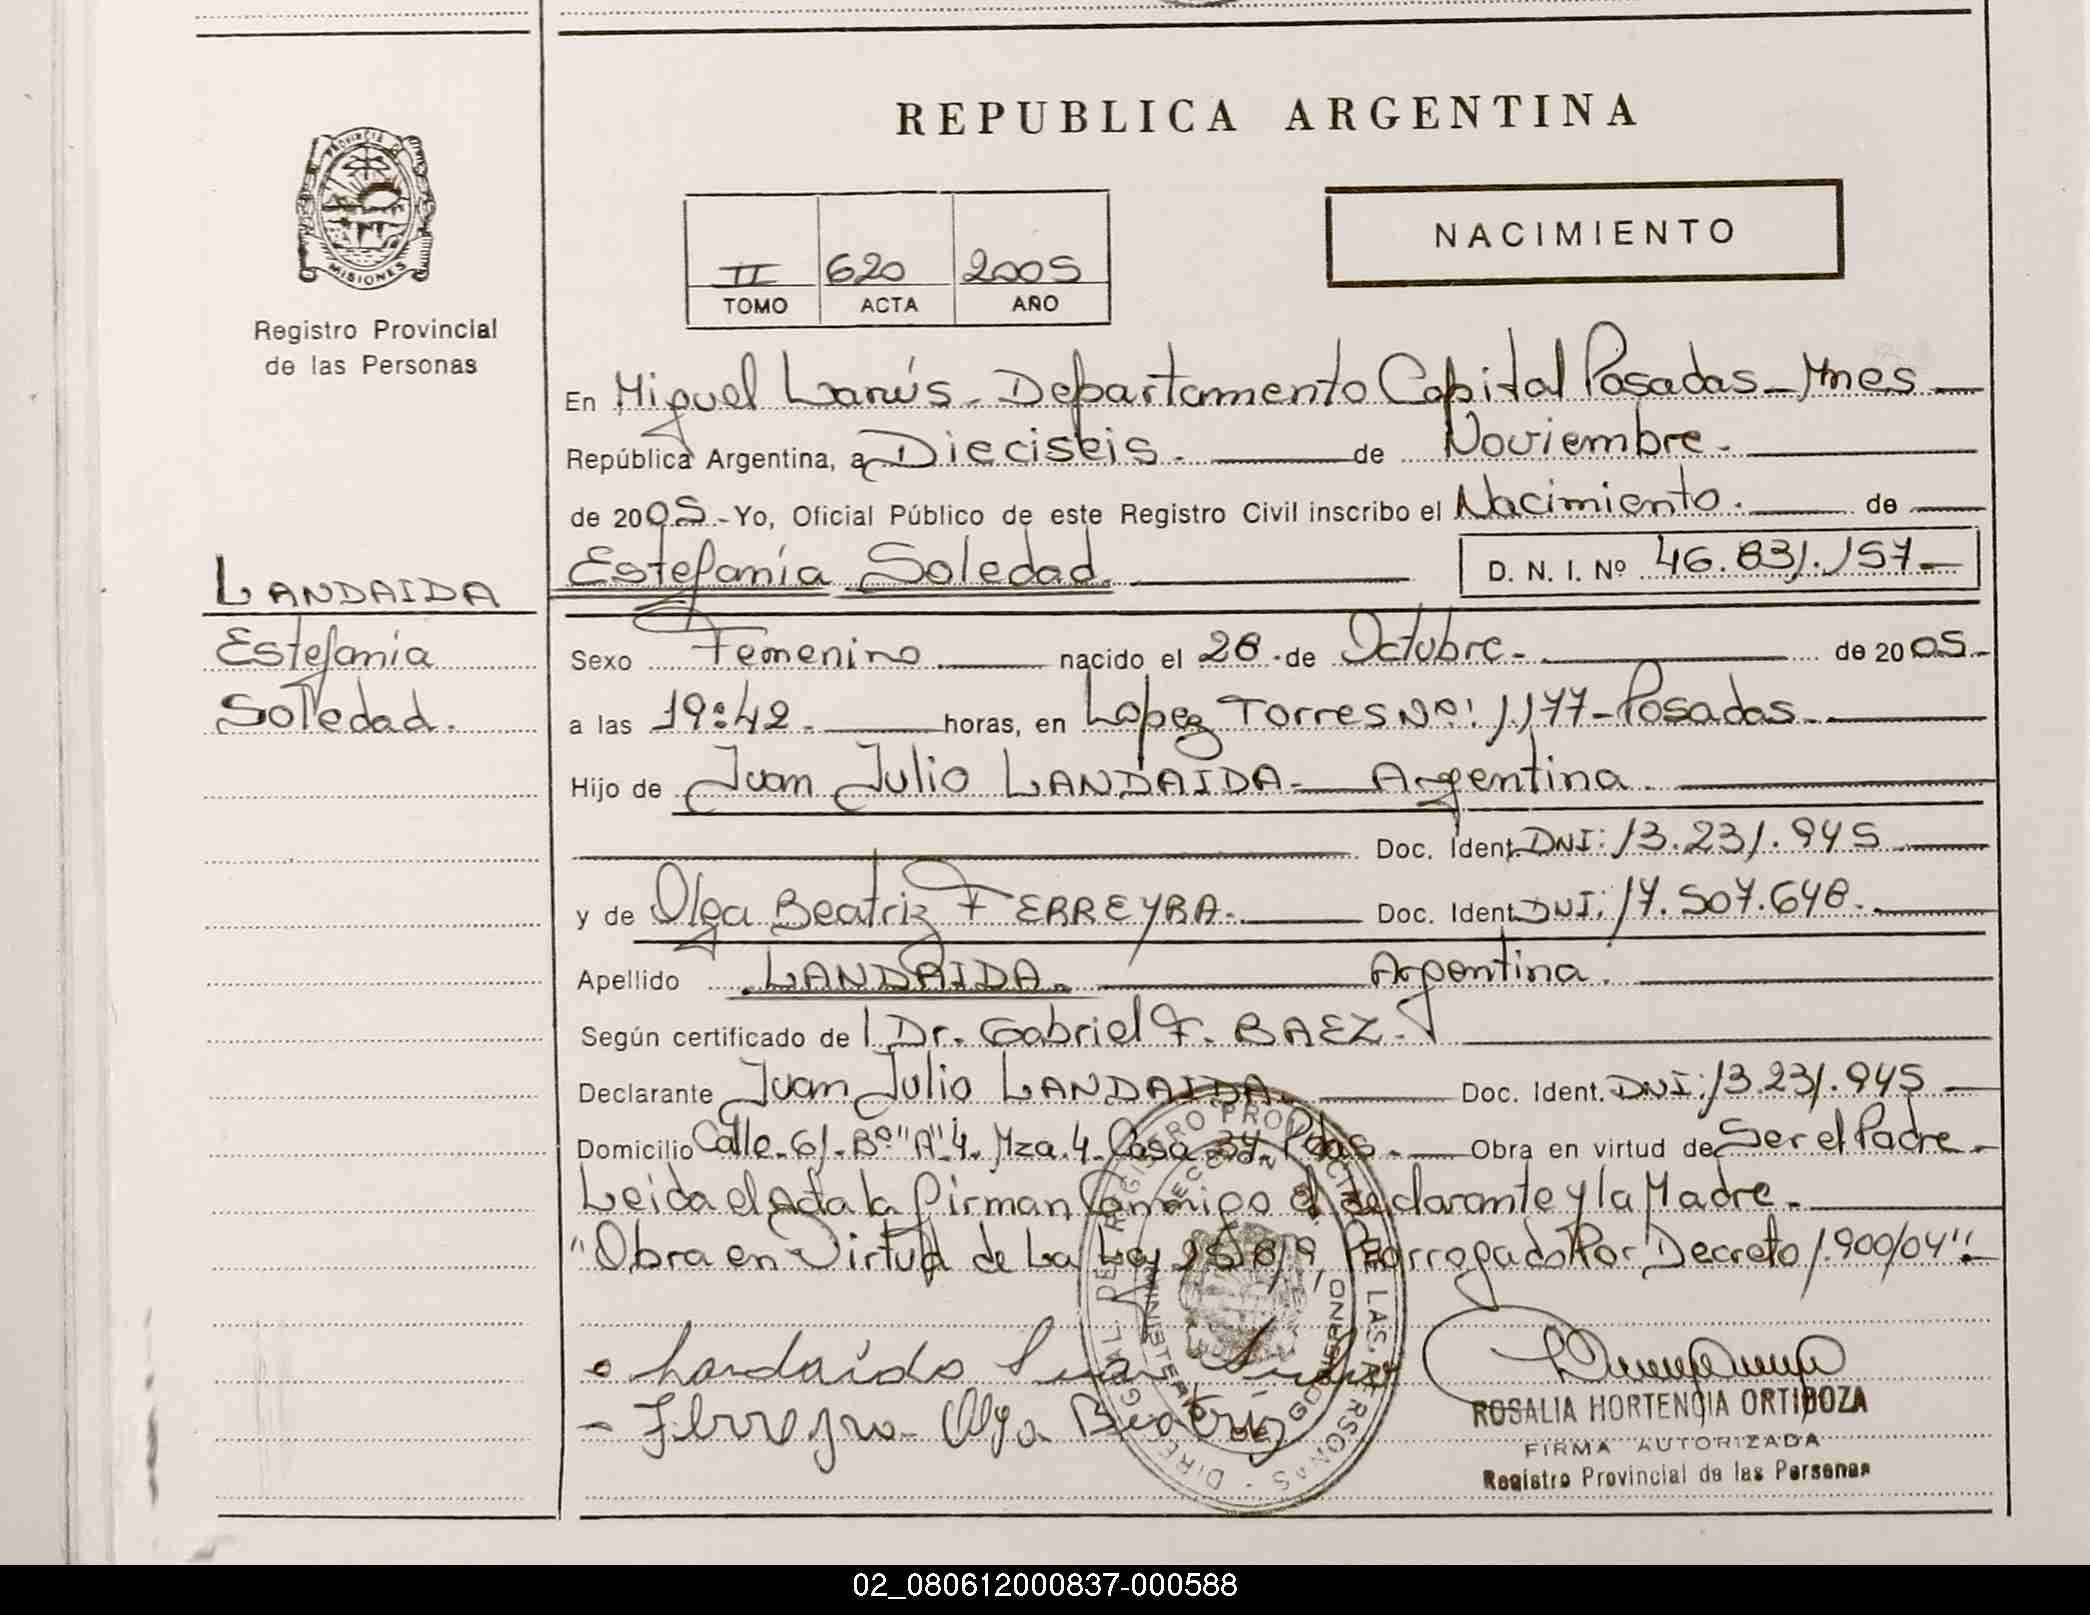 REPUBLICA ARGENTINA
PROVINCIA DE
MISIONES
Registro Provincial
de las Personas
NACIMIENTO
II 620 2005
TOMO ACTA AÑO
En Miguel Lanús - Departamento Capital Posadas - Mnes
República Argentina, a Dieciseis. de Noviembre.
de 2005 - Yo, Oficial Público de este Registro Civil inscribo el Nacimiento. de
Estefanía Soledad. D. N. I. Nº 46.831.157
LANDAIDA
Estefania
Soledad.
Sexo Femenino nacido el 28 de Octubre - de 2005.
a las 19:42. horas, en Lopez Torres Nº: 1177 - Posadas.
Hijo de Juan Julio LANDAIDA - Argentina.
Doc. Ident. DNI: 13.231.945
y de Olga Beatriz FERREYRA. Doc. Ident. DNI: 17.507.648.
Apellido LANDAIDA. Argentina.
Según certificado de l Dr. Gabriel F. BAEZ.
Declarante Juan Julio LANDAIDA. Doc. Ident. DNI: 13.231.945
Domicilio Calle 61 - Bº "A" 4. Mza. 4 - Casa 34 Pdas. Obra en virtud de Ser el Padre
Leida el Acta la firman Conmigo el declarante y la Madre.
"Obra en Virtud de La Ley 25819, Prorrogado Por Decreto 1.900/04".
Landaida Juan Julio
- Ferreyra Olga Beatriz
DIREC. GRAL. DEL REGISTRO PROVINCIAL DE LAS PERSONAS
MINISTERIO DE GOBIERNO
ROSALIA HORTENCIA ORTIBOZA
FIRMA AUTORIZADA
Registro Provincial de las Personas
02_080612000837-000588